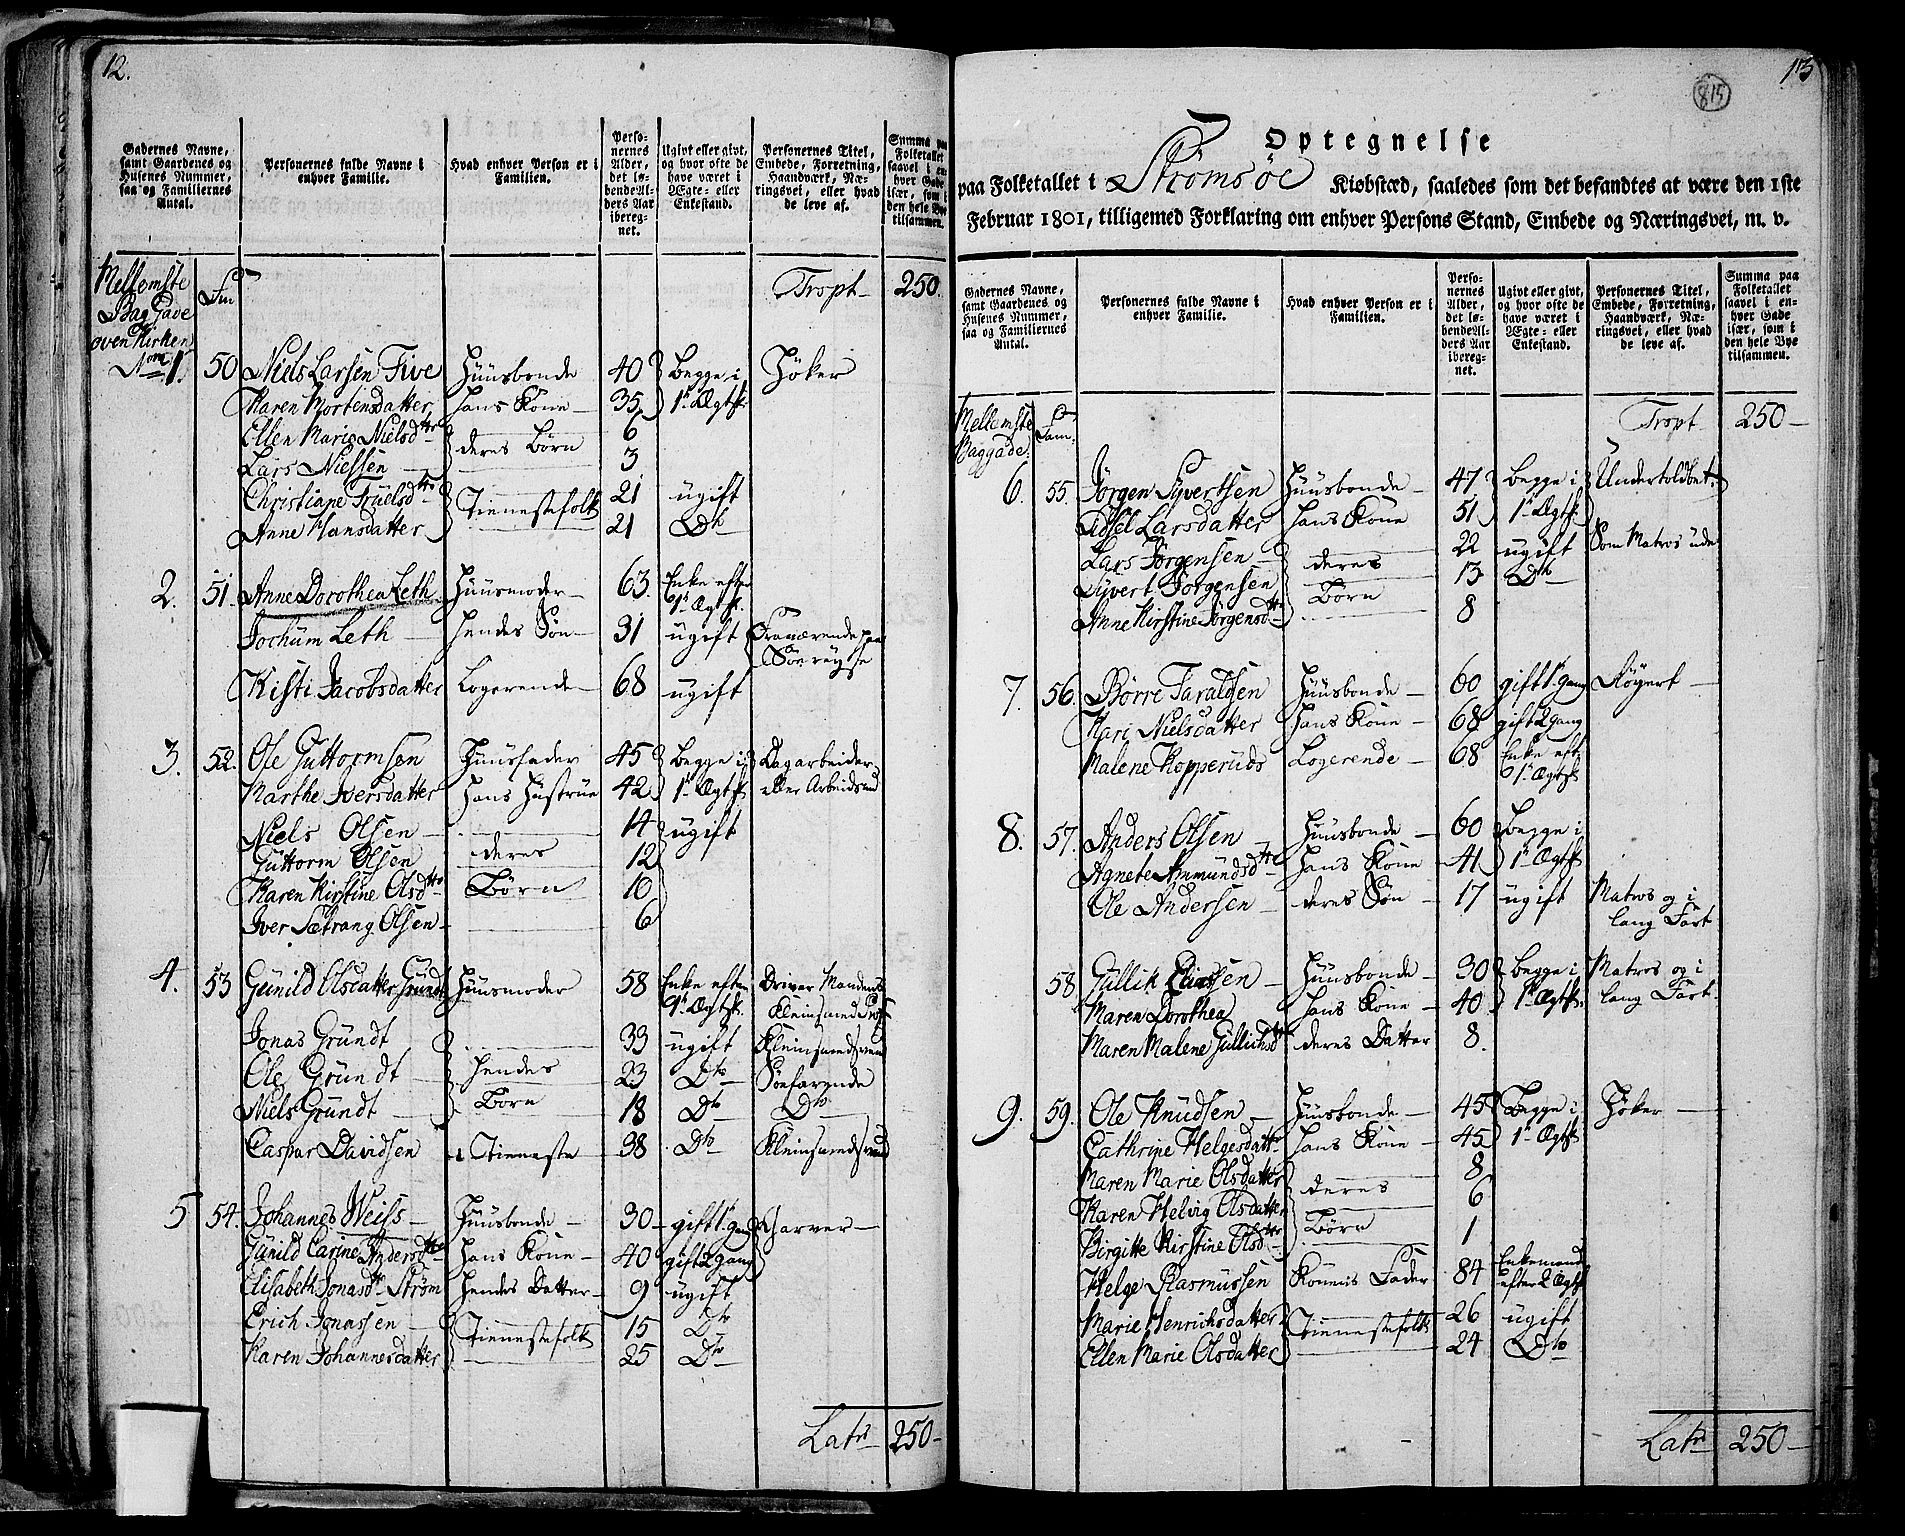 12.
Gadernes Navne, samt Gaardenes og Husenes Nummer, saa og Familiernes Antal.
Personernes fulde Navne i enhver Familie.
Hvad enhver Person er i Familien.
Personernes Alder, det løbende Alders Aar iberegnet.
Ugivt eller givt, og hvor ofte de have været i Ægte- eller Enkestand.
Personernes Titel, Embede, Forretning, Haandværk, Næringsvei, eller hvad de leve af.
Summa paa Folketallet saavel i enhver Gade især, som i den hele Bye tilsammen.
Mellemste Bag Gade oven Kirken Fm Trspt 250.
Nom 1. 50 Niels Larsen Five Huusbonde 40 Begge i 1te Ægtsk. Høker
Karen Mortensdatter hans Kone 35
Ellen Marie Nielsdtr deres Børn 6
Lars Nielsen 3
Christiane Truelsdtr Tienestefolk 21 ugift
Anne Hansdatter 21 Do
2. 51. Anne Dorothea Leth Huusmoder 63. Enke efter 1t Ægtsk.
Jochum Leth hendes Søn 31 ugift Fraværende paa Søe reyse
Kisti Jacobsdatter Logerende 68 ugift
3. 52. Ole Guttormsen Huusfader 45 Begge i 1t Ægtsk Dagarbeider eller Arbeidsmd
Marthe Iversdatter hans Hustrue 42
Niels Olsen deres Børn 14 ugift
Guttorm Olsen 12
Karen Kirstine Olsdtr 10
Iver Sætrang Olsen 6
4. 53 Gunild Olsdatter Grundt Huusmoder 58 Enke efter 1t Ægtsk. Driver Mandens Kleinsmed
Jonas Grundt hendes Børn 33 ugift Kleinsmedsvend
Ole Grundt 23 Do Søefarende
Niels Grundt 18 Do Do
Caspar Davidsen i Tieneste 38 Do Kleinsmedsvend
5 54. Johannes Weiss Huusbonde 30 gift 1t gang Garver
Gunild Carine Andersdtr hans Kone 40 gift 2 gang
Elisabeth Jonasdtr Strøm hendes Datter 9 ugift
Erich Jonassen Tienestefolk 15 Do
Karen Johannesdatter 25 Do
Latr 250
13
815
Optegnelse
paa Folketallet i Strømsøe Kiøbstæd, saaledes som det befandtes at være den 1ste
Februar 1801, tilligemed Forklaring om enhver Persons Stand, Embede og Næringsvei, m. v.
Gadernes Navne, samt Gaardenes og Husenes Nummer, saa og Familiernes Antal.
Personernes fulde Navne i enhver Familie.
Hvad enhver Person er i Familien.
Personernes Alder, det løbende Alders Aar iberegnet.
Ugivt eller givt, og hvor ofte de have været i Ægte- eller Enkestand.
Personernes Titel, Embede, Forretning, Haandværk, Næringsvei, eller hvad de leve af.
Summa paa Folketallet saavel i enhver Gade især, som i den hele Bye tilsammen.
Mellemste Baggade. Fam. Trspt 250
6. 55. Jørgen Syvertsen Huusbonde 47 begge i 1t Ægtsk Undertoldbet.
Edsel Larsdatter hans Kone 51
Lars Jørgensen deres Børn 22 ugift Som Matros ude
Syvert Jorgensen 13 Do
Anne Kirstine Jørgensdtr 8
7. 56. Børre Taraldsen Huusbonde 60 gift 1t gang Røgert
Kari Nielsdatter hans Kone 68 gift 2 gang
Malene Kopperuds Logerende 68 Enke eft 1t Ægtsk
8. 57. Anders Olsen Huusbonde 60 begge i 1t Ægtsk
Agnete Amundsdtr hans Kone 41
Ole Andersen deres Søn 17 ugift Matros og i lang Fart
58. Gullik Eliassen Huusbonde 30 begge i 1t Ægtsk. Matros og i lang Fart.
Maren Dorothea hans Kone 40
Maren Malene Gullichsdtr deres Datter 8.
9. 59. Ole Knudsen Huusbonde 45 Begge i 1t Ægtsk Høker
Cathrine Helgesdattr hans Kone 45
Maren Marie Olsdatter deres Børn 8
Karen Helvig Olsdatter 6
Birgitte Kirstine Olsdtr 1
Helge Rasmussen Konens Fader 84 Enkemand efter 2 Ægtsk
Marie Henrichsdatter Tienestefolk 26 ugift
Ellen Marie Olsdatter 24 Do
Latr 250